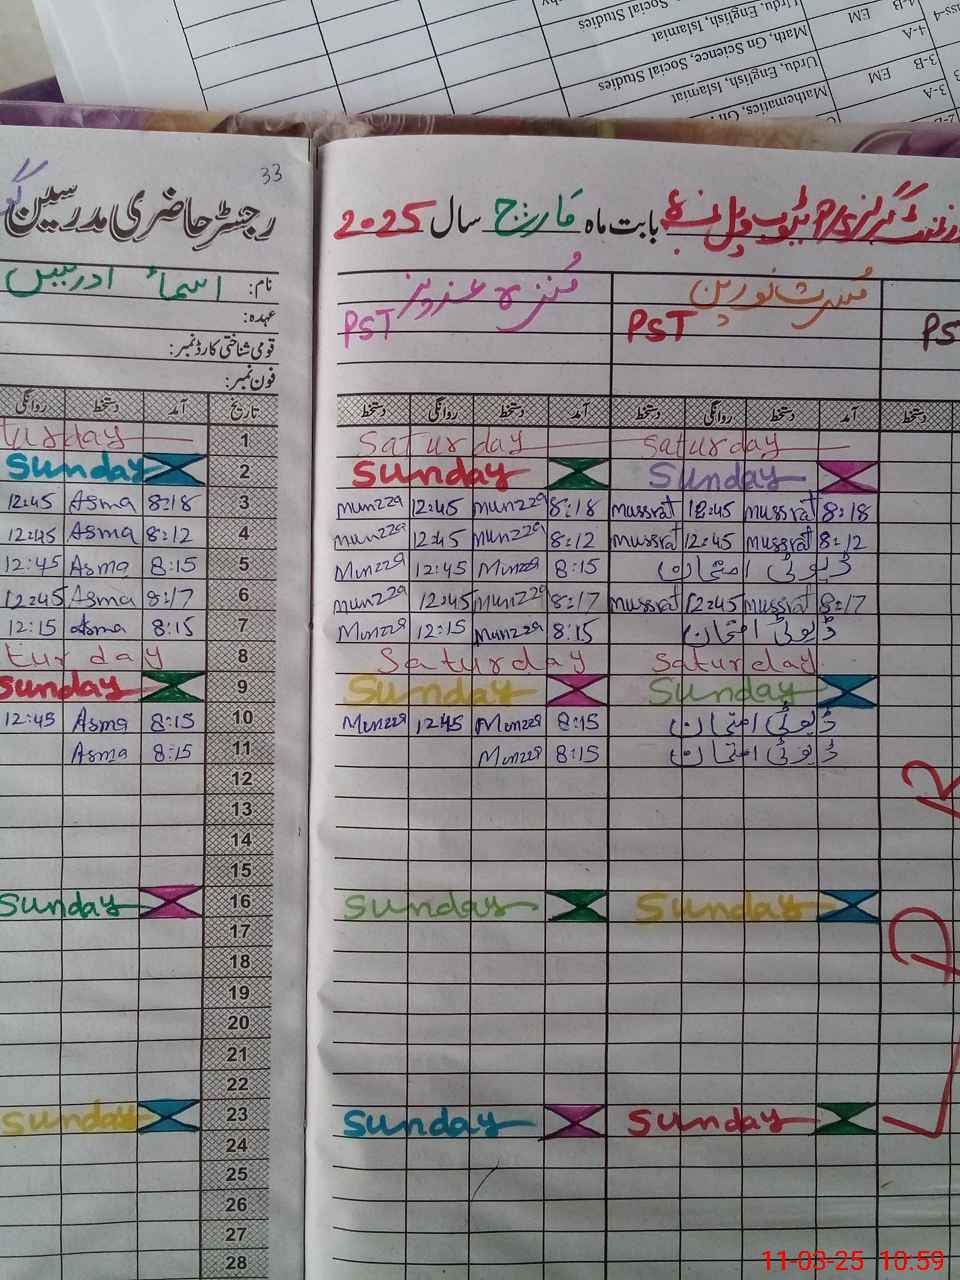 Social Studies
Urdu, English, Islamiat
Math, Gn Science, Social Studies
Urdu, English, Islamiat
Mathematics, Gn
EM
EM
4-B
4-A
3-B
3-A
33
رجسٹر حاضری مدرسین
بابت ماہ مارچ سال 2025
نام: اسماء ادریس
عہدہ:
قومی شناختی کارڈ نمبر:
فون نمبر:
منزہ عزیز
PST
مسرت نورین
PST
PS
تاریخ آمد دستخط روانگی
آمد دستخط روانگی دستخط
آمد دستخط روانگی دستخط
دستخط
turday 1 Saturday Saturday
Sunday 2 Sunday Sunday
12:45 Asma 8:18 3 Munzza 12:45 Munzza 8:18 Mussrat 12:45 Mussrat 8:18
12:45 Asma 8:12 4 Munzza 12:45 Munzza 8:12 Mussrat 12:45 Mussrat 8:12
12:45 Asma 8:15 5 Munzza 12:45 Munzza 8:15 ڈیوٹی امتحان
12:45 Asma 8:17 6 Munzza 12:45 Munzza 8:17 Mussrat 12:45 Mussrat 8:17
12:15 Asma 8:15 7 Munzza 12:15 Munzza 8:15 ڈیوٹی امتحان
turday 8 Saturday Saturday
Sunday 9 Sunday Sunday
12:45 Asma 8:15 10 Munzza 12:45 Munzza 8:15 ڈیوٹی امتحان
Asma 8:15 11 Munzza 8:15 ڈیوٹی امتحان
12
13
14
15
Sunday 16 Sunday Sunday
17
18
19
20
21
22
Sunday 23 Sunday Sunday
24
25
26
27
28
11-03-25 10:59